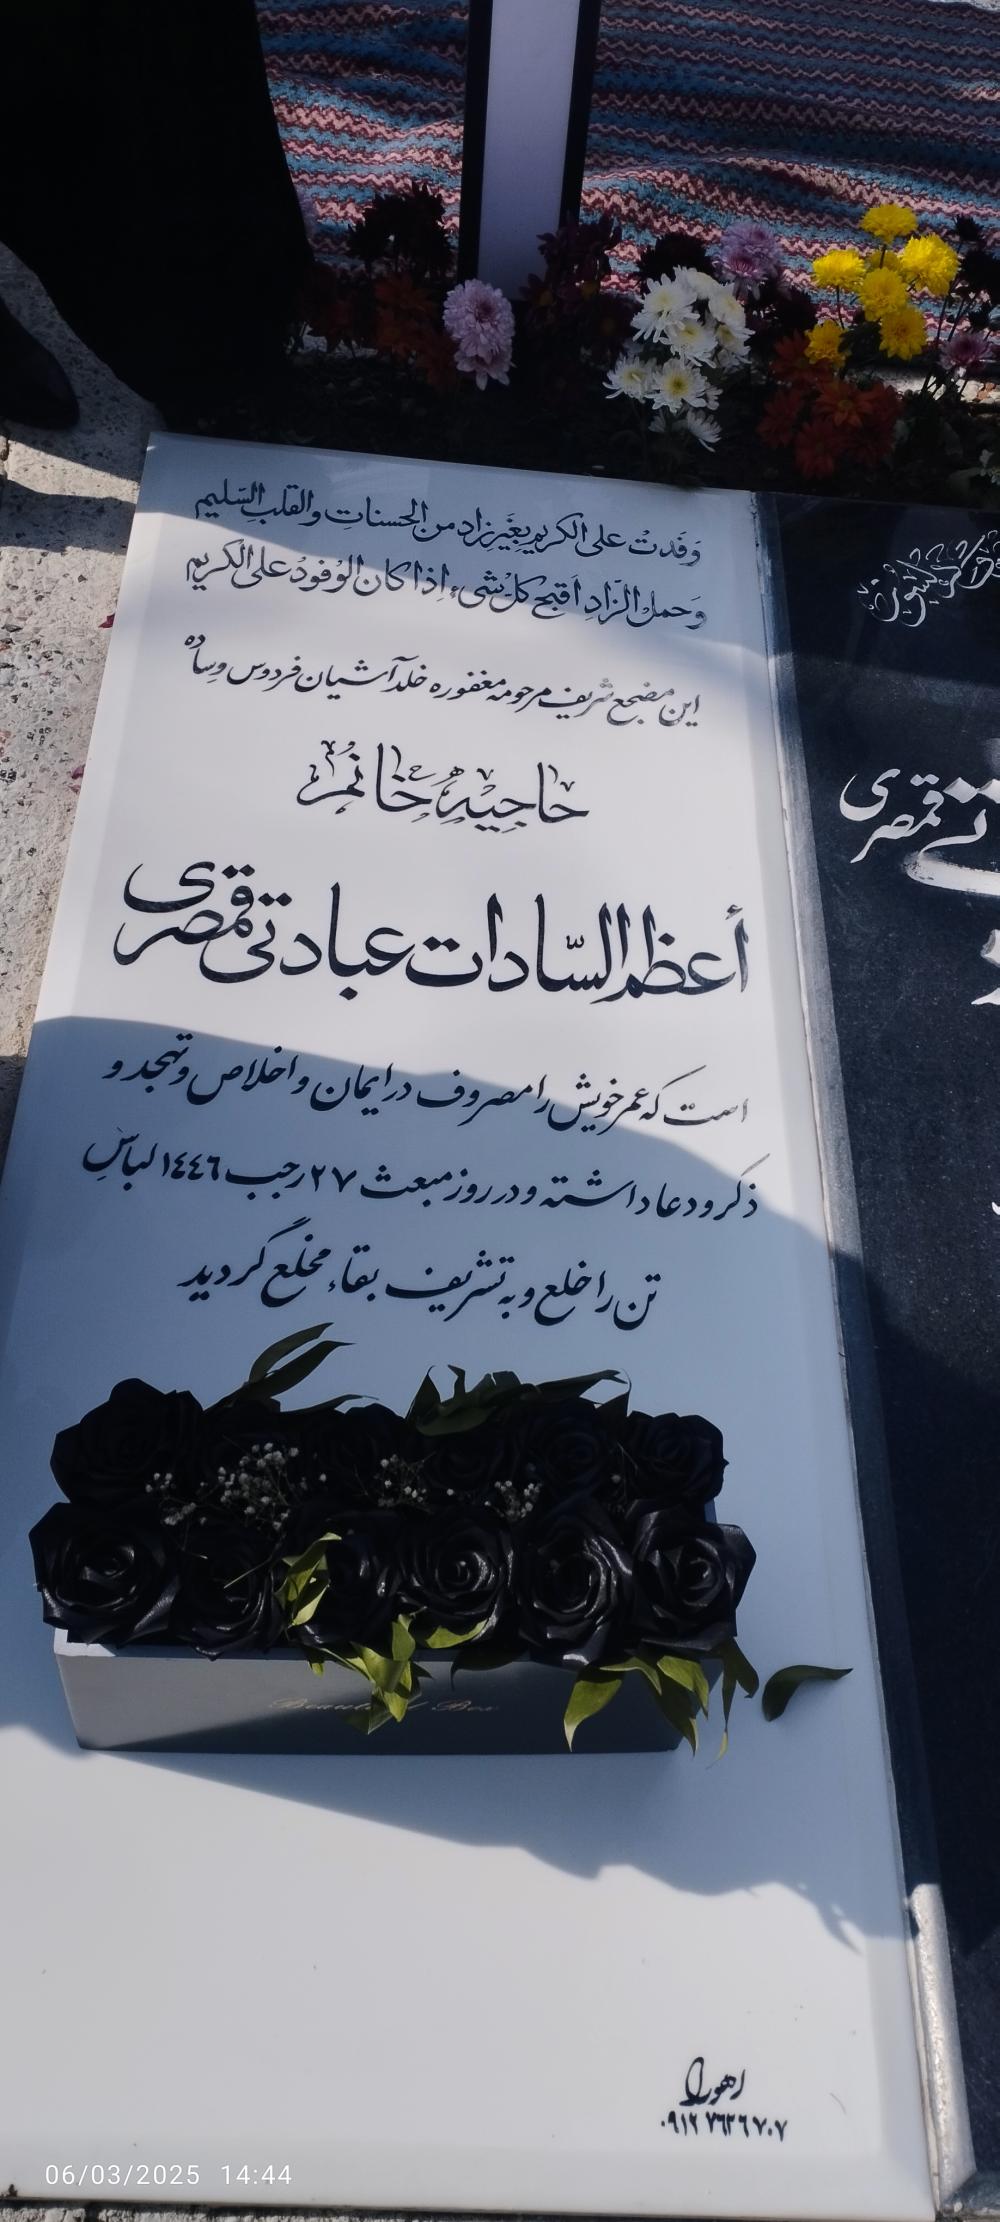 وَفَدتْ علی الکریمِ بِغَیرِ زادٍ من الحسنات والقلب السّلیم
وَحملُ الزّادِ اَقبحُ کلّ شیءٍ اِذا کان الوُفودُ علی الکریم
این مضجع شریف مرحومه مغفوره خلد آشیان فردوس وساده
حاجیه خانم
أعظم السّادات عبادتی قمصری
است که عمر خویش را مصروف در ایمان و اخلاص و تهجد و
ذکر و دعا داشته و در روز مبعث ۲۷ رجب ۱٤٤٦ لباسِ
تن را خلع و به تشریف بقاء مخلع گردید
Beautiful Box
تی قمصری
اهورا
۰۹۱۲ ۷٦۲٦۷۰۷
06/03/2025 14:44